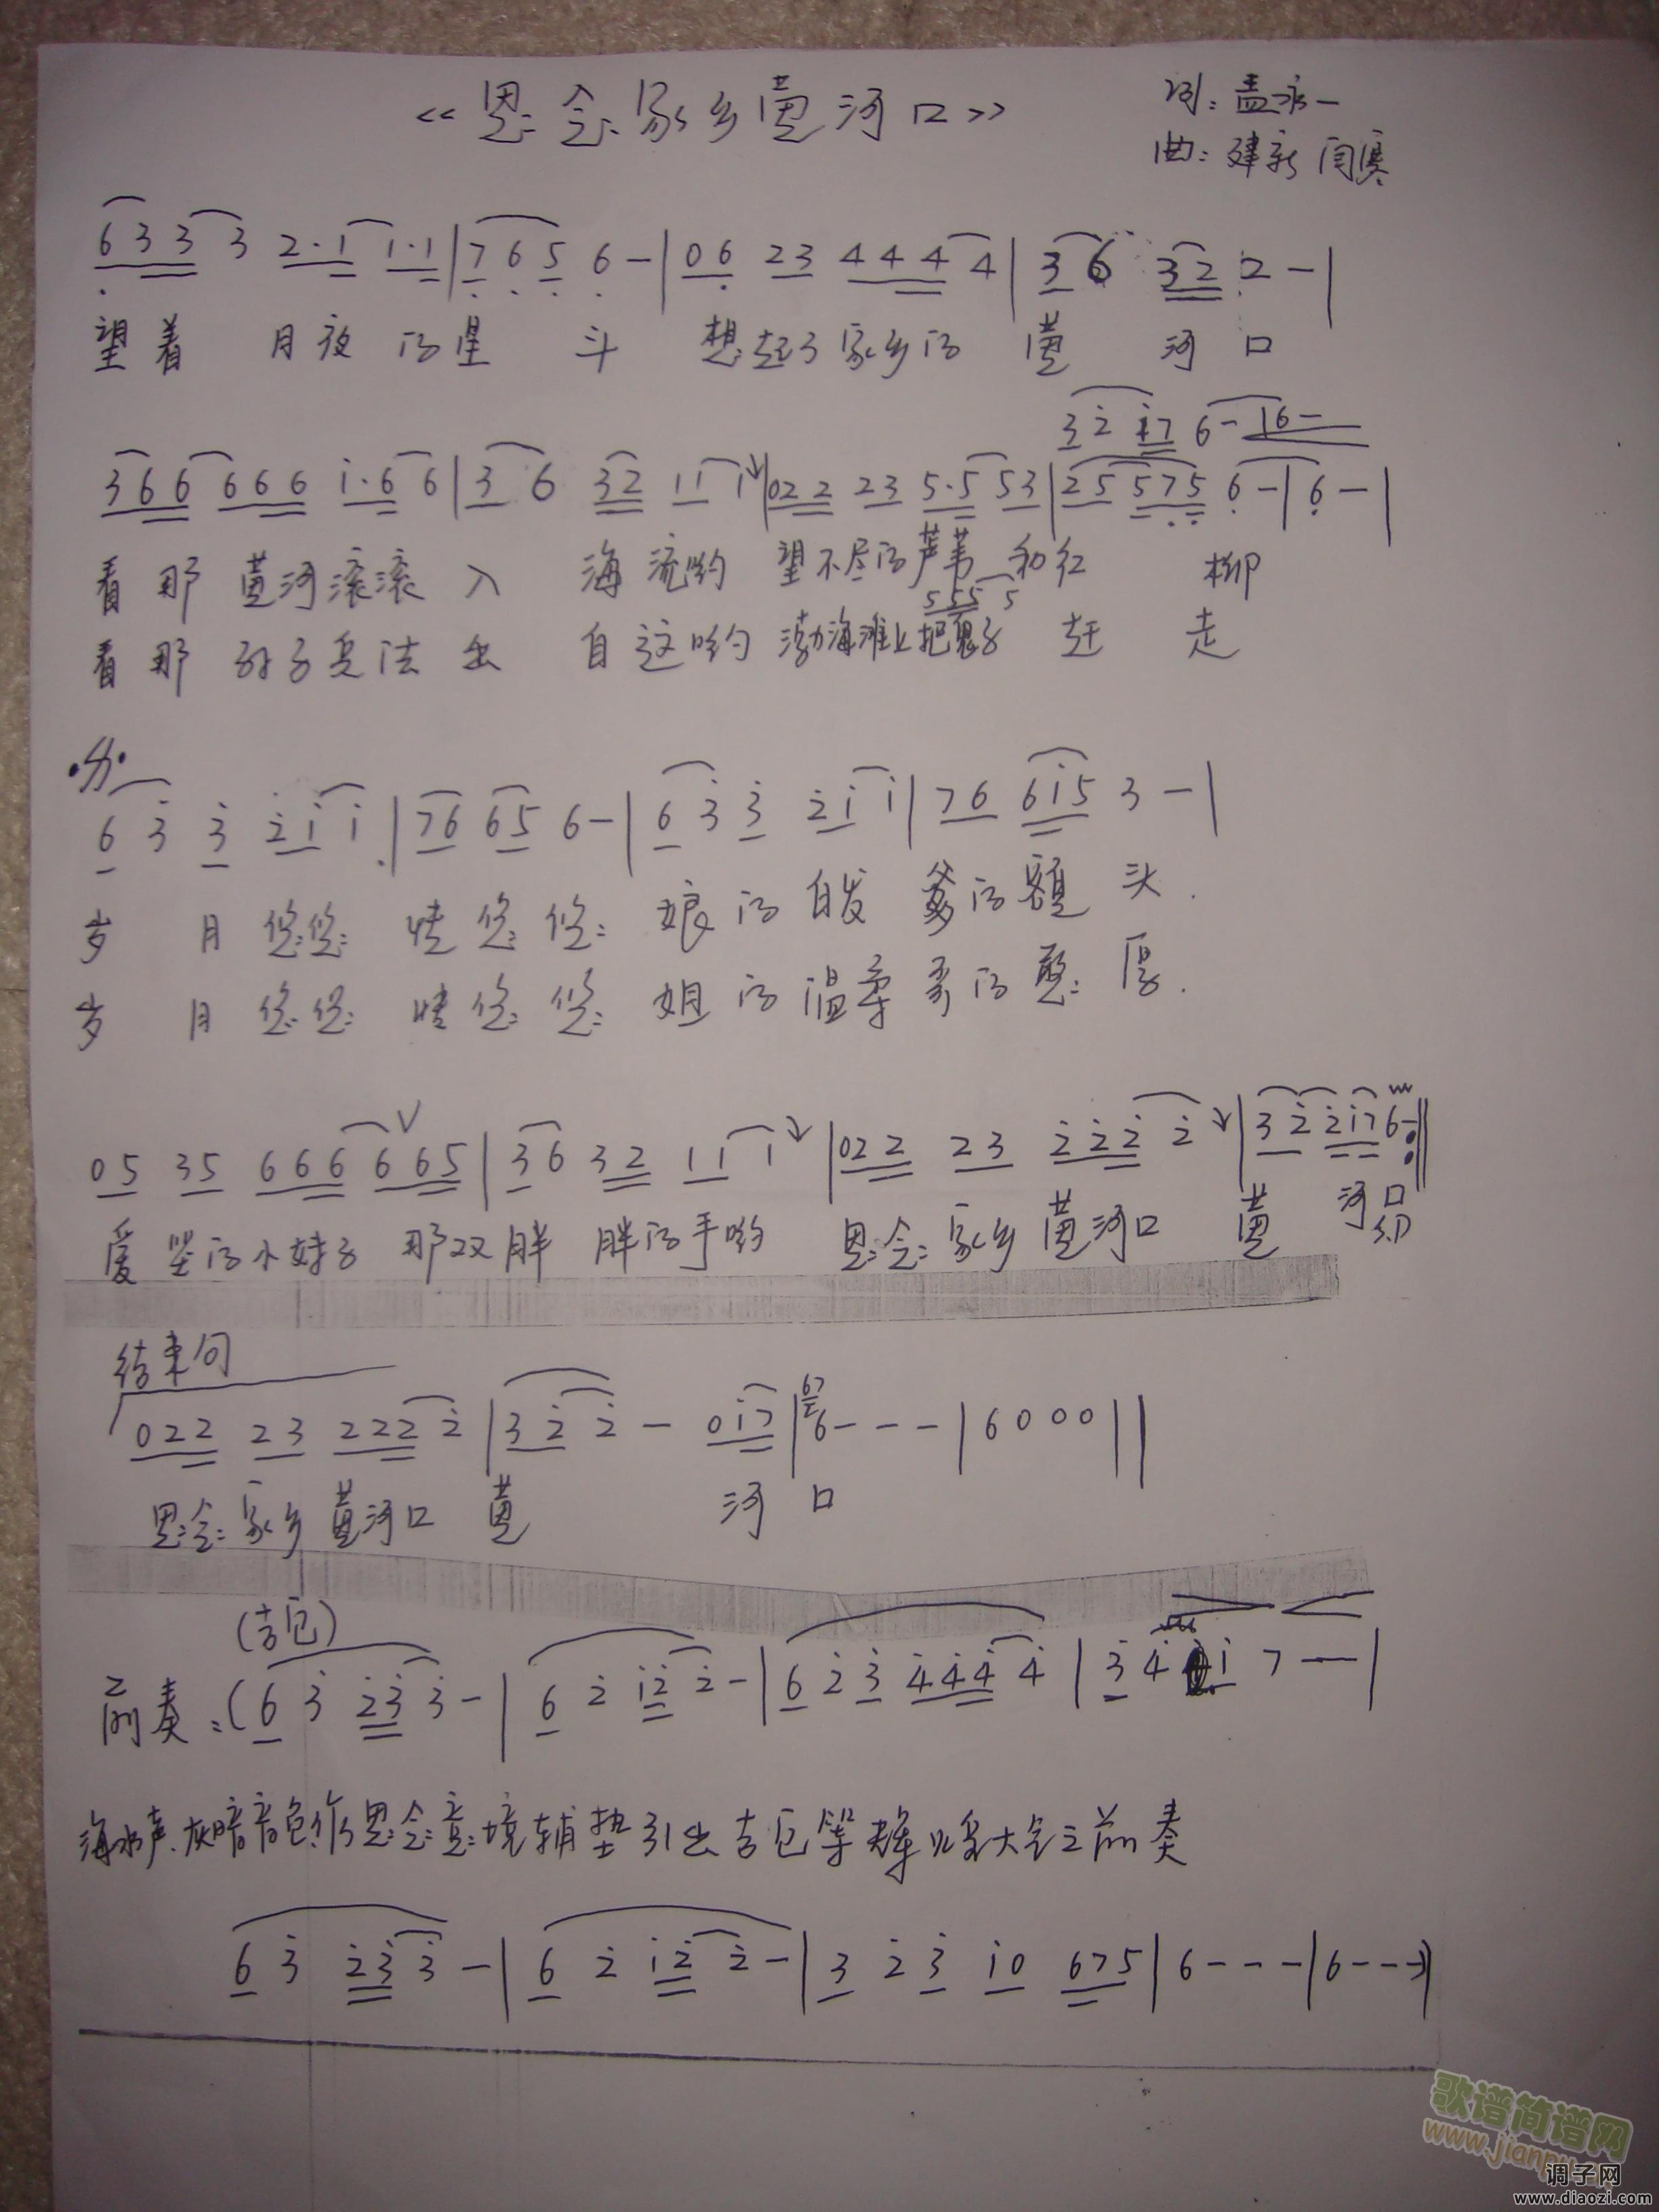 《思念家乡黄河口》
词：孟永一
曲：建新 闫寒
6 3 3 3 2·1 1·1 | 7 6 5 6 - | 0 6 2 3 4 4 4 4 | 3 6 3 2 2 - |
望着 月夜的星 斗 想起了家乡的 黄 河 口
3 2̇ 1̇7 6 - | 6 -
3 6 6 6 6 6 1̇·6 6 | 3 6 3 2 1 1 1 | 0 2 2 2 3 5·5 5 3 | 2 5 5 7 5 6 - | 6 - |
看那黄河滚滚入 海流哟 望不尽的芦苇和红 柳
5 5 5 5
看那孙子兵法出 自这哟 渤海滩上把鬼子 赶 走
6 3̇ 3̇ 2̇ 1̇ 1̇ | 7 6 6 5 6 - | 6 3̇ 3̇ 2̇ 1̇ 1̇ | 7 6 6 1̇ 5 3 - |
岁 月悠悠 情悠悠 娘的白发 爹的额头
岁 月悠悠 情悠悠 姐的温柔 哥的憨厚
0 5 3 5 6 6 6 6 6 5 | 3 6 3 2 1 1 1 | 0 2 2 2 3 2̇ 2̇ 2̇ 2̇ | 3 2̇ 2̇ 1̇ 7 6 - :‖
爱哭的小妹子 那双胖 胖的手哟 思念家乡黄河口 黄 河口
结束句
0 2 2 2 3 2 2 2 2̇ | 3 2̇ 2̇ - 0 1̇ 7 | 67 6 - - - | 6 0 0 0 ‖
思念家乡黄河口 黄 河 口
(吉它)
前奏：( 6 3̇ 2̇ 3̇ 3̇ - | 6 2̇ 1̇ 2̇ 2̇ - | 6 2̇ 3̇ 4̇ 4̇ 4̇ 4̇ | 3̇ 4̇ 1̇ 7 - |
海水声.灰暗音色作思念意境辅垫引出吉它等大气之前奏
6 3̇ 2̇ 3̇ 3̇ - | 6 2̇ 1̇ 2̇ 2̇ - | 3 2̇ 3̇ 1̇ 0 6 7 5 | 6 - - - | 6 - - - ) |
歌谱简谱网
www.jianpu
调子网
www.diaozi.com